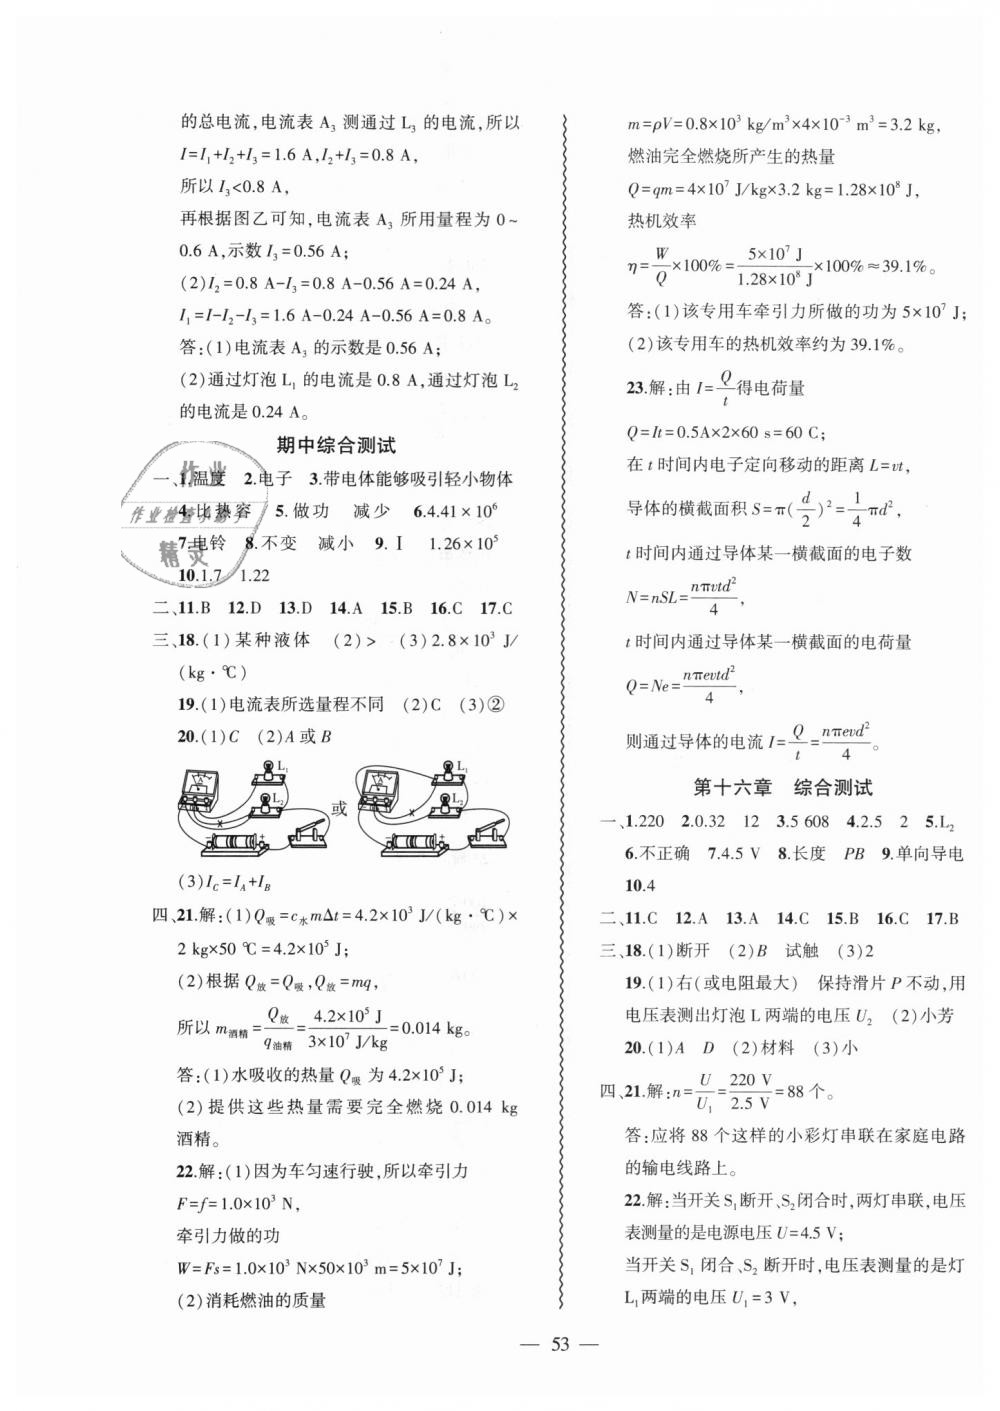 的总电流,电流表 A₃ 测通过 L₃ 的电流,所以
I=I₁+I₂+I₃=1.6 A,I₂+I₃=0.8 A,
所以 I₃<0.8 A,
再根据图乙可知,电流表 A₃ 所用量程为 0~
0.6 A,示数 I₃=0.56 A;
(2)I₂=0.8 A-I₃=0.8 A-0.56 A=0.24 A,
I₁=I-I₂-I₃=1.6 A-0.24 A-0.56 A=0.8 A。
答:(1)电流表 A₃ 的示数是 0.56 A;
(2)通过灯泡 L₁ 的电流是 0.8 A,通过灯泡 L₂
的电流是 0.24 A。
期中综合测试
一、1.温度 2.电子 3.带电体能够吸引轻小物体
4.比热容 5.做功 减少 6.4.41×10⁶
7.电铃 8.不变 减小 9.Ⅰ 1.26×10⁵
10.1.7 1.22
二、11.B 12.D 13.D 14.A 15.B 16.C 17.C
三、18.(1)某种液体 (2)> (3)2.8×10³ J/
(kg·℃)
19.(1)电流表所选量程不同 (2)C (3)②
20.(1)C (2)A 或 B
L₁ L₂ 或 L₁ L₂
(3)I_C=I_A+I_B
四、21.解:(1)Q吸=c水mΔt=4.2×10³ J/(kg·℃)×
2 kg×50 ℃=4.2×10⁵ J;
(2)根据 Q放=Q吸,Q放=mq,
所以 m酒精=Q放/q油精=4.2×10⁵ J/3×10⁷ J/kg=0.014 kg。
答:(1)水吸收的热量 Q吸 为 4.2×10⁵ J;
(2)提供这些热量需要完全燃烧 0.014 kg
酒精。
22.解:(1)因为车匀速行驶,所以牵引力
F=f=1.0×10³ N,
牵引力做的功
W=Fs=1.0×10³ N×50×10³ m=5×10⁷ J;
(2)消耗燃油的质量
m=ρV=0.8×10³ kg/m³×4×10⁻³ m³=3.2 kg,
燃油完全燃烧所产生的热量
Q=qm=4×10⁷ J/kg×3.2 kg=1.28×10⁸ J,
热机效率
η=W/Q×100%=5×10⁷ J/1.28×10⁸ J×100%≈39.1%。
答:(1)该专用车牵引力所做的功为 5×10⁷ J;
(2)该专用车的热机效率约为 39.1%。
23.解:由 I=Q/t得电荷量
Q=It=0.5A×2×60 s=60 C;
在 t 时间内电子定向移动的距离 L=vt,
导体的横截面积 S=π(d/2)²=1/4πd²,
t 时间内通过导体某一横截面的电子数
N=nSL=nπvtd²/4,
t 时间内通过导体某一横截面的电荷量
Q=Ne=nπevtd²/4,
则通过导体的电流 I=Q/t=nπevd²/4。
第十六章 综合测试
一、1.220 2.0.32 12 3.5 608 4.2.5 2 5.L₂
6.不正确 7.4.5 V 8.长度 PB 9.单向导电
10.4
二、11.C 12.A 13.A 14.C 15.B 16.C 17.B
三、18.(1)断开 (2)B 试触 (3)2
19.(1)右(或电阻最大) 保持滑片 P 不动,用
电压表测出灯泡 L 两端的电压 U₂ (2)小芳
20.(1)A D (2)材料 (3)小
四、21.解:n=U/U₁=220 V/2.5 V=88 个。
答:应将 88 个这样的小彩灯串联在家庭电路
的输电线路上。
22.解:当开关 S₁断开、S₂闭合时,两灯串联,电压
表测量的是电源电压 U=4.5 V;
当开关 S₁ 闭合、S₂ 断开时,电压表测量的是灯
L₁两端的电压 U₁=3 V,
— 53 —